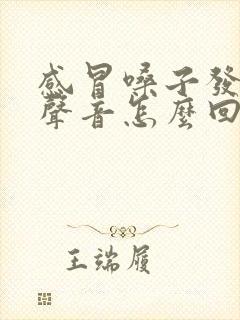 感冒嗓子發
聲音怎麼回
王端履